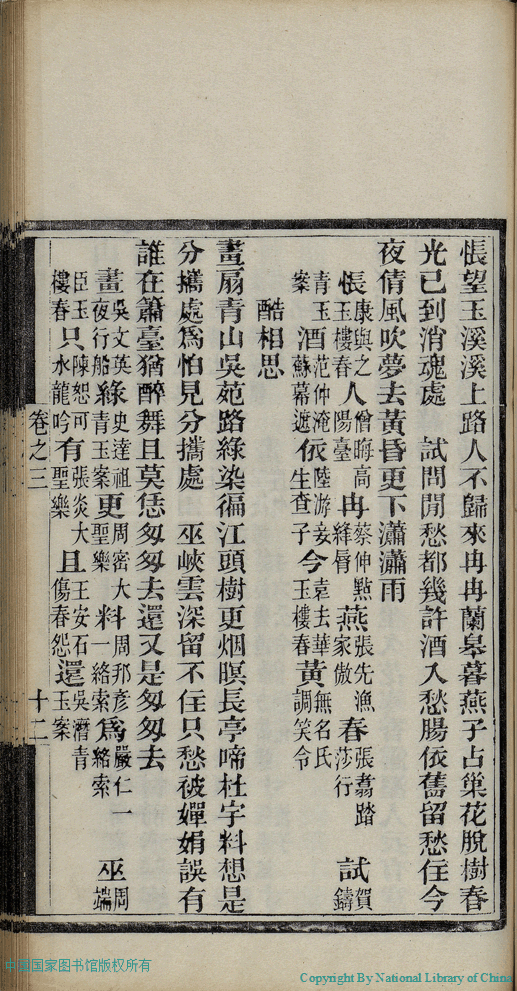 悵望玉溪溪上路人不歸來冉冉蘭皋暮燕子占巢花脫樹春
光已到消魂處　試問閒愁都幾許酒入愁腸依舊留愁住今
夜倩風吹夢去黃昏更下瀟瀟雨
悵康與之玉樓春人僧晦高陽臺冉蔡伸點絳脣燕張先漁家傲春張翥踏莎行試賀鑄
青玉案酒范仲淹蘇幕遮依陸游妾生查子今袁去華玉樓春黃無名氏調笑令
酷相思
畫扇青山吳苑路綠染徧江頭樹更烟暝長亭啼杜宇料想是
分攜處爲怕見分攜處　巫峽雲深留不住只愁被嬋娟誤有
誰在簫臺猶醉舞且莫恁匆匆去還又是匆匆去
畫吳文英夜行船綠史達祖青玉案更周密大聖樂料周邦彥一絡索爲嚴仁一絡索巫周端
臣玉樓春只陳恕可水龍吟有張炎大聖樂且王安石傷春怨還吳潛青玉案
卷之三　十二
中国国家图书馆版权所有
Copyright By National Library of China